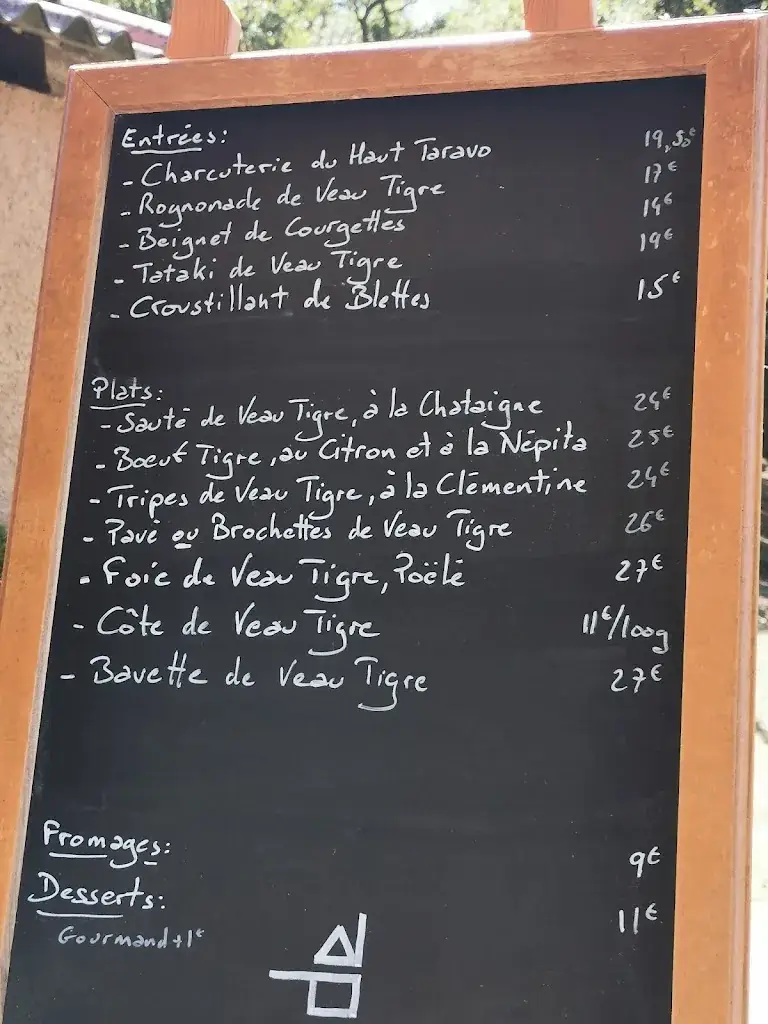 Entrées:
- Charcuterie du Haut Taravo 19,50€
- Rognonade de Veau Tigre 17€
- Beignet de Courgettes 14€
- Tataki de Veau Tigre 19€
- Croustillant de Blettes 15€
Plats:
- Sauté de Veau Tigre, à la Chataigne 24€
- Boeuf Tigre, au Citron et à la Népita 25€
- Tripes de Veau Tigre, à la Clémentine 24€
- Pavé ou Brochettes de Veau Tigre 26€
- Foie de Veau Tigre, Poëlé 27€
- Côte de Veau Tigre 11€/100g
- Bavette de Veau Tigre 27€
Fromages: 9€
Desserts: 11€
Gourmand +1€